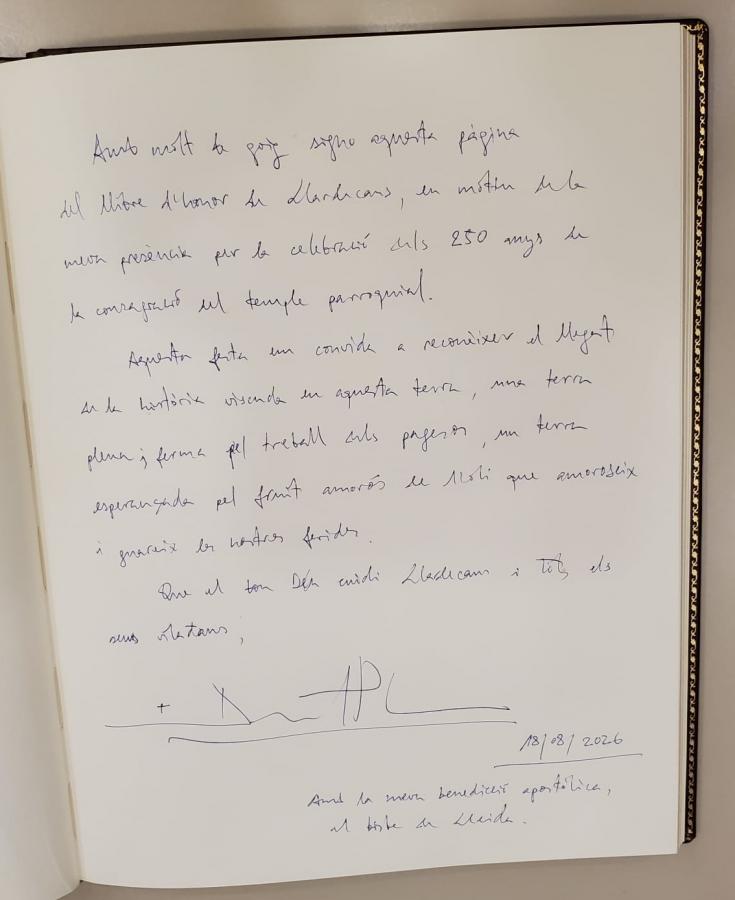 Amb molt de goig signo aquesta pàgina
del llibre d'honor de Llardecans, en motiu de la
meva presència per la celebració dels 250 anys de
la consagració del temple parroquial.
Aquesta festa em convida a reconèixer el llegat
de la història viscuda en aquesta terra, una terra
plena i ferma pel treball dels pagesos, un terra
esperançada pel fruit amorós de l'oli que amoroseix
i guareix les nostres ferides.
Que el bon Déu cuidi Llardecans i tots els
seus vilatans;
+
18/08/2026
Amb la meva benedicció apostòlica,
el bisbe de Lleida.